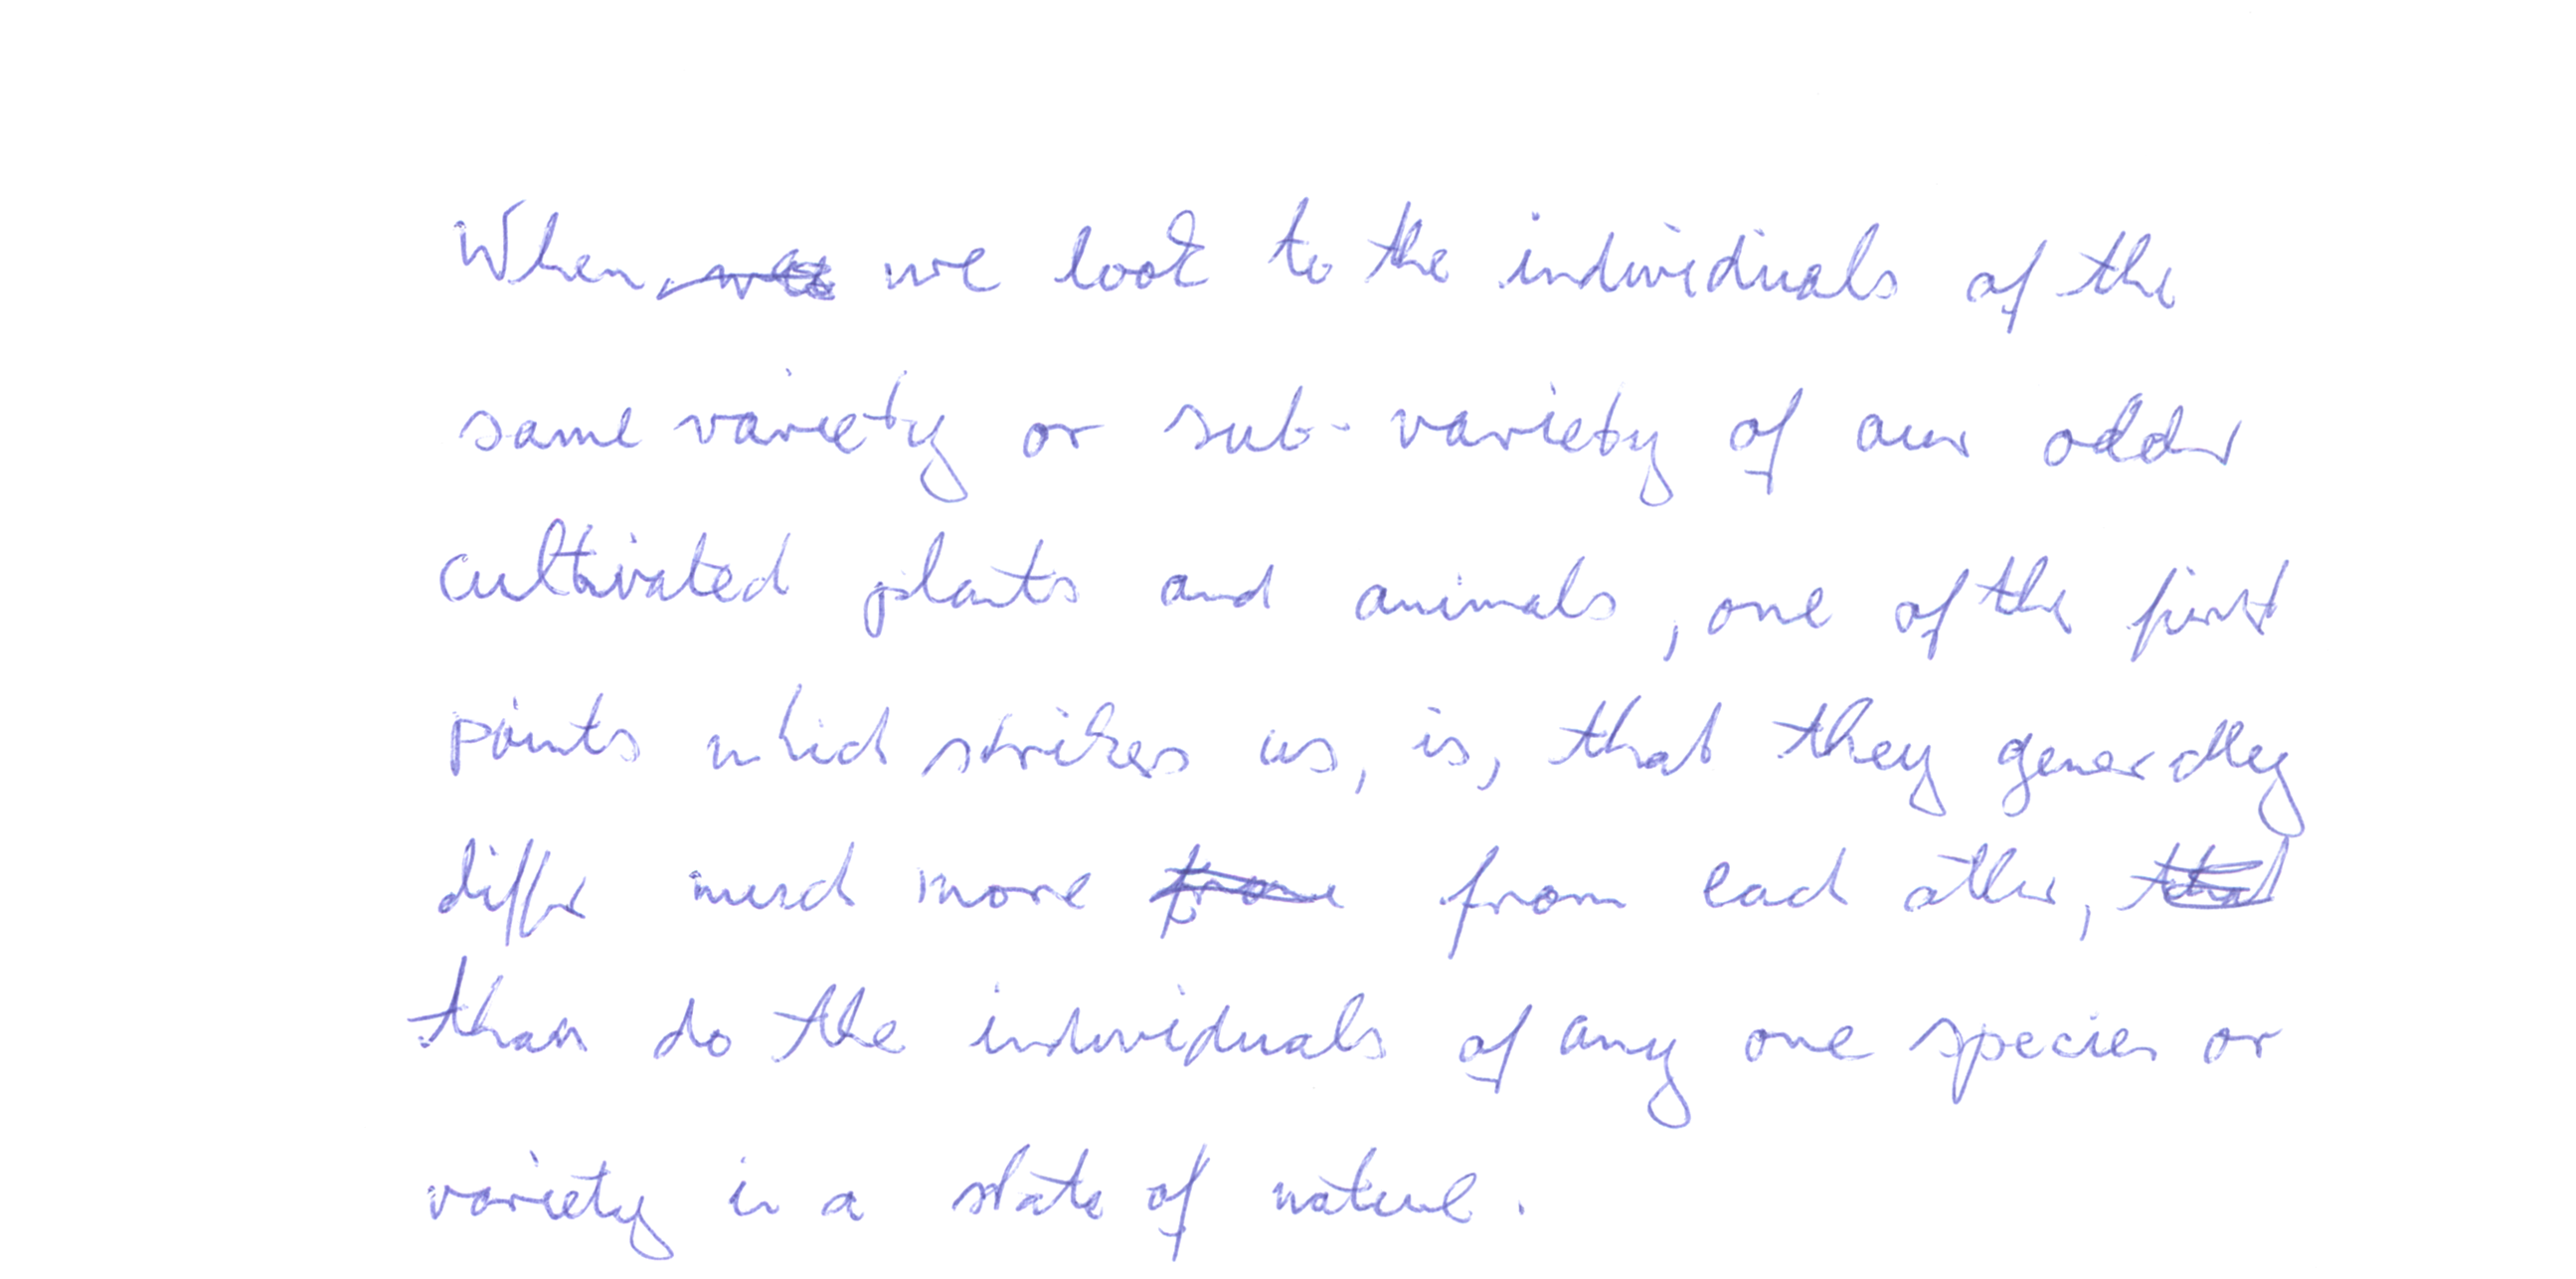 When we look to the individuals of the
same variety or sub-variety of our older
cultivated plants and animals, one of the first
points which strikes us, is, that they generally
differ much more from each other,
than do the individuals of any one species or
variety in a state of nature.